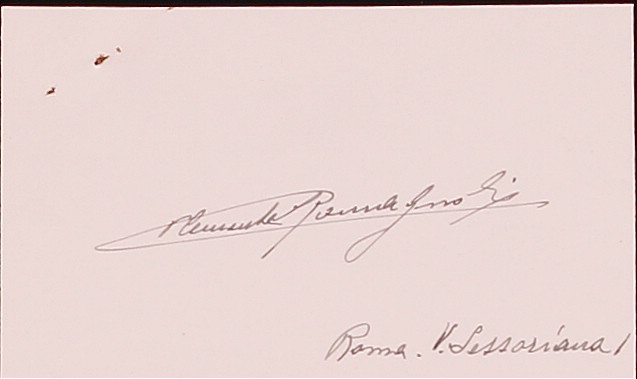 Romagnoli
Roma. V. Sessoriana 1